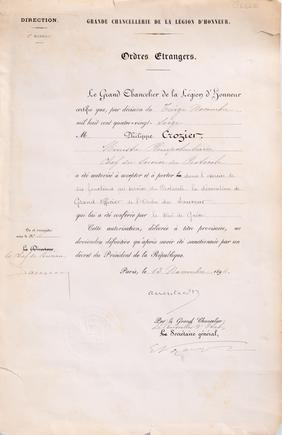 DIRECTION.
GRANDE CHANCELLERIE DE LA LÉGION D'HONNEUR.
Ordres Étrangers.
Le Grand Chancelier de la Légion d'Honneur
certifie que, par décision du Treize Novembre
mil huit cent quatre-vingt- Seize
M. Philippe Crozier,
Ministre Plénipotentiaire
Chef du Service du Protocole
a été autorisé à accepter et à porter dans l'exercice de
ses fonctions au service du Protocole la décoration de
Grand Officier de l'Ordre du Sauveur
qui lui a été conférée par le Roi de Grèce.
Cette autorisation, délivrée à titre provisoire, ne
deviendra définitive qu'après avoir été sanctionnée par un
décret du Président de la République.
Vu et enregistré
Le Directeur
le Chef de Bureau,
Paris, le 13 Novembre 1896
Par le Grand Chancelier:
Le Secrétaire général,